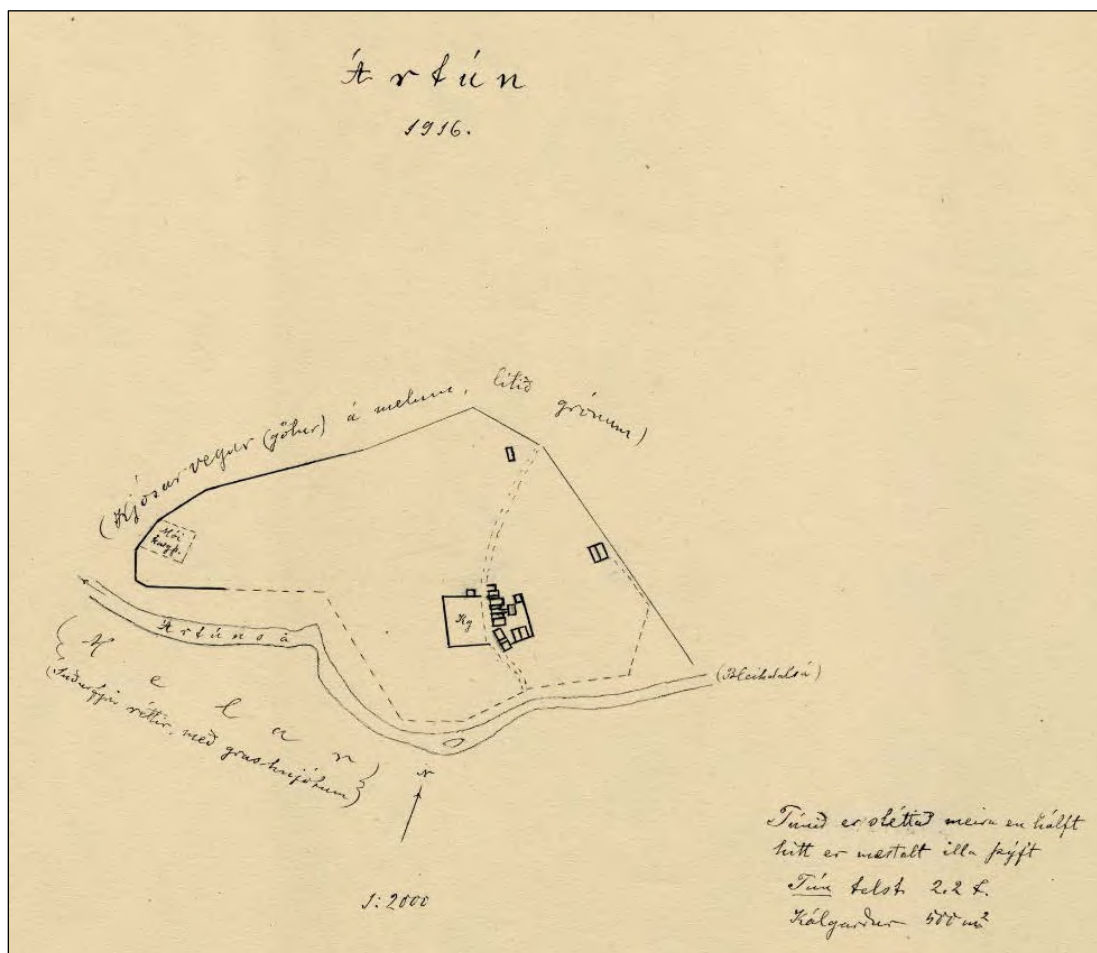 Ártún
1916.
(Kjósarvegur (götur) á melum, lítið grónum)
Mói
Kg
Ártúnsá
(Bleikdalsá)
{Melar}
réttir, með grashnjótum)
N
Túnið er sléttað meira en hálft
hitt er mestalt illa þýft
Tún telst 2.2 t.
Kálgarður 500 m²
1:2000